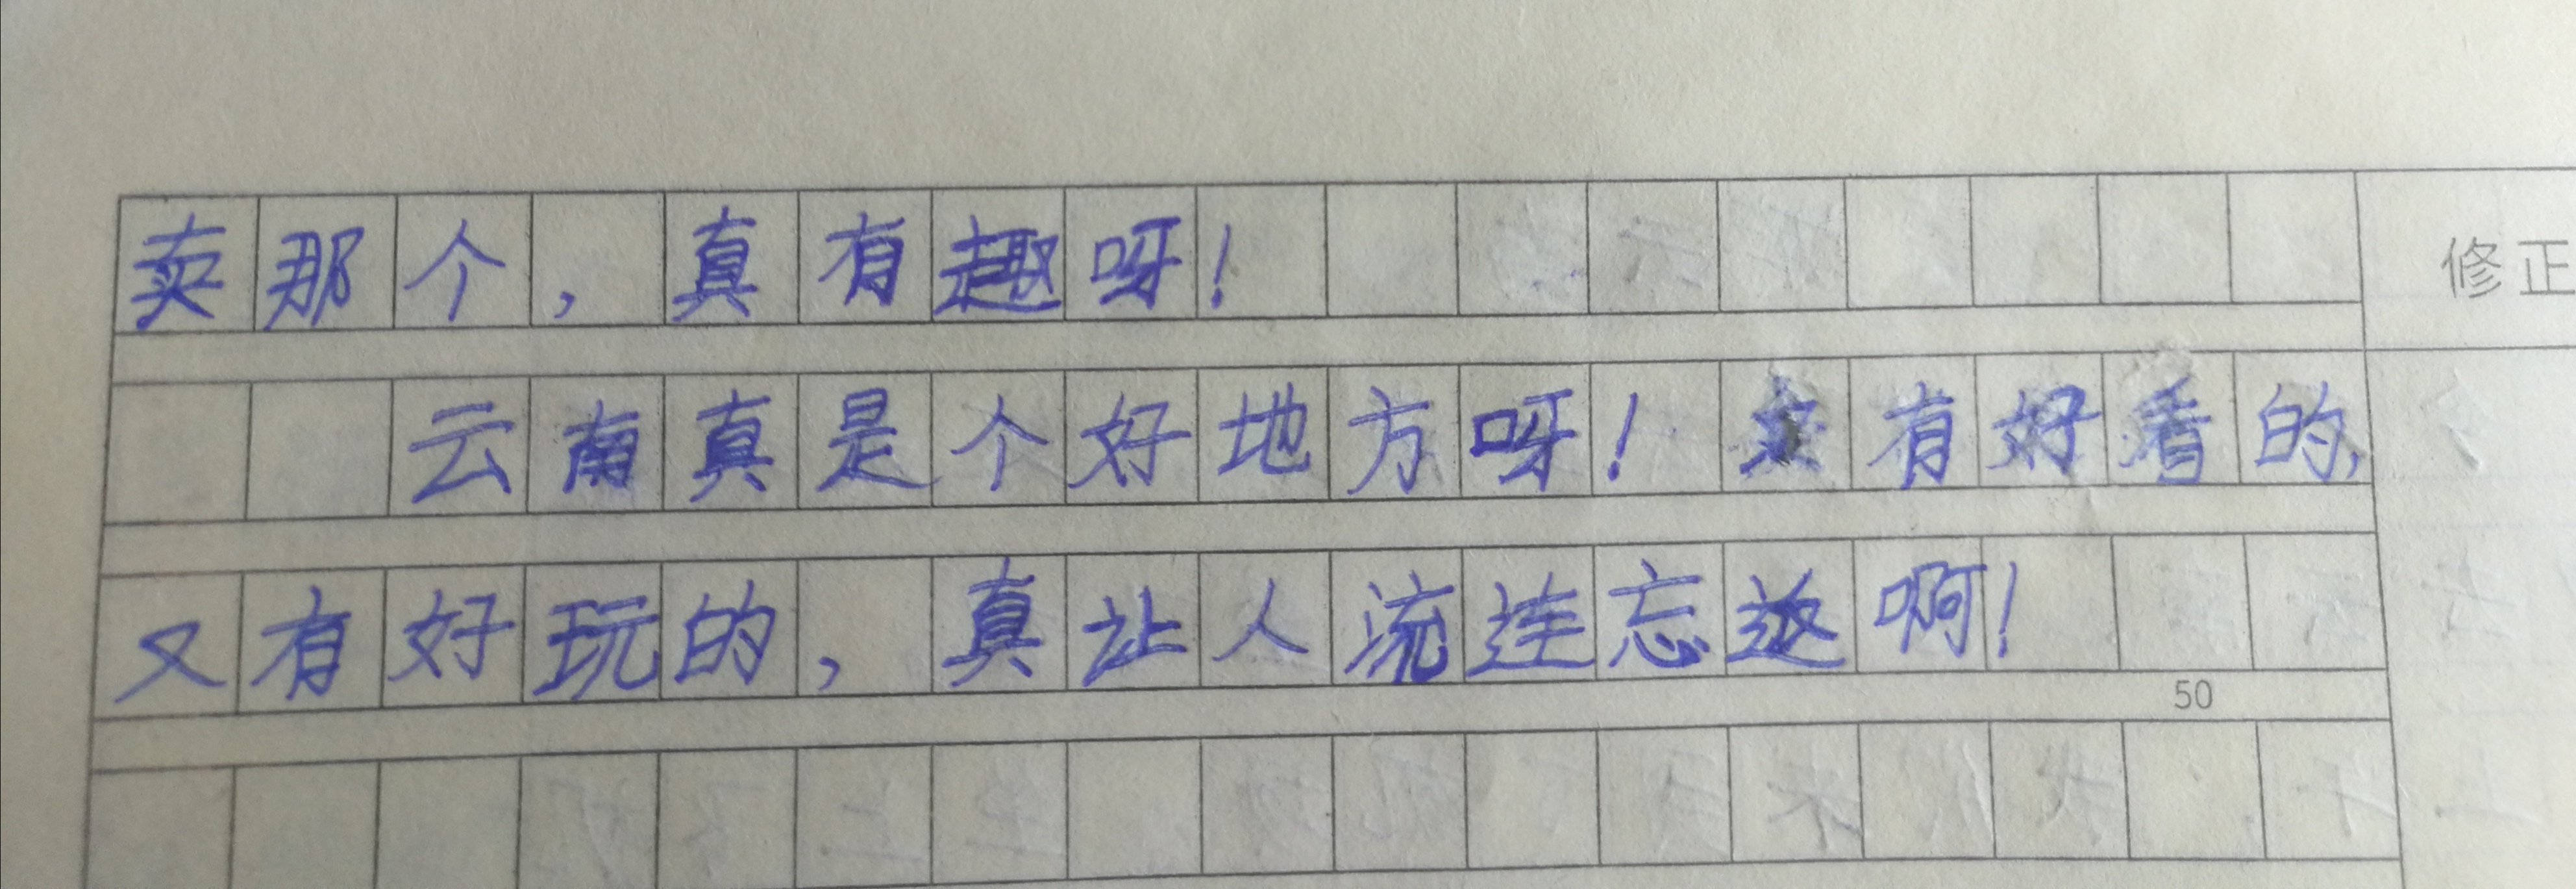 卖那个，真有趣呀！
修正
云南真是个好地方呀！有好看的，
又有好玩的，真让人流连忘返啊！
50